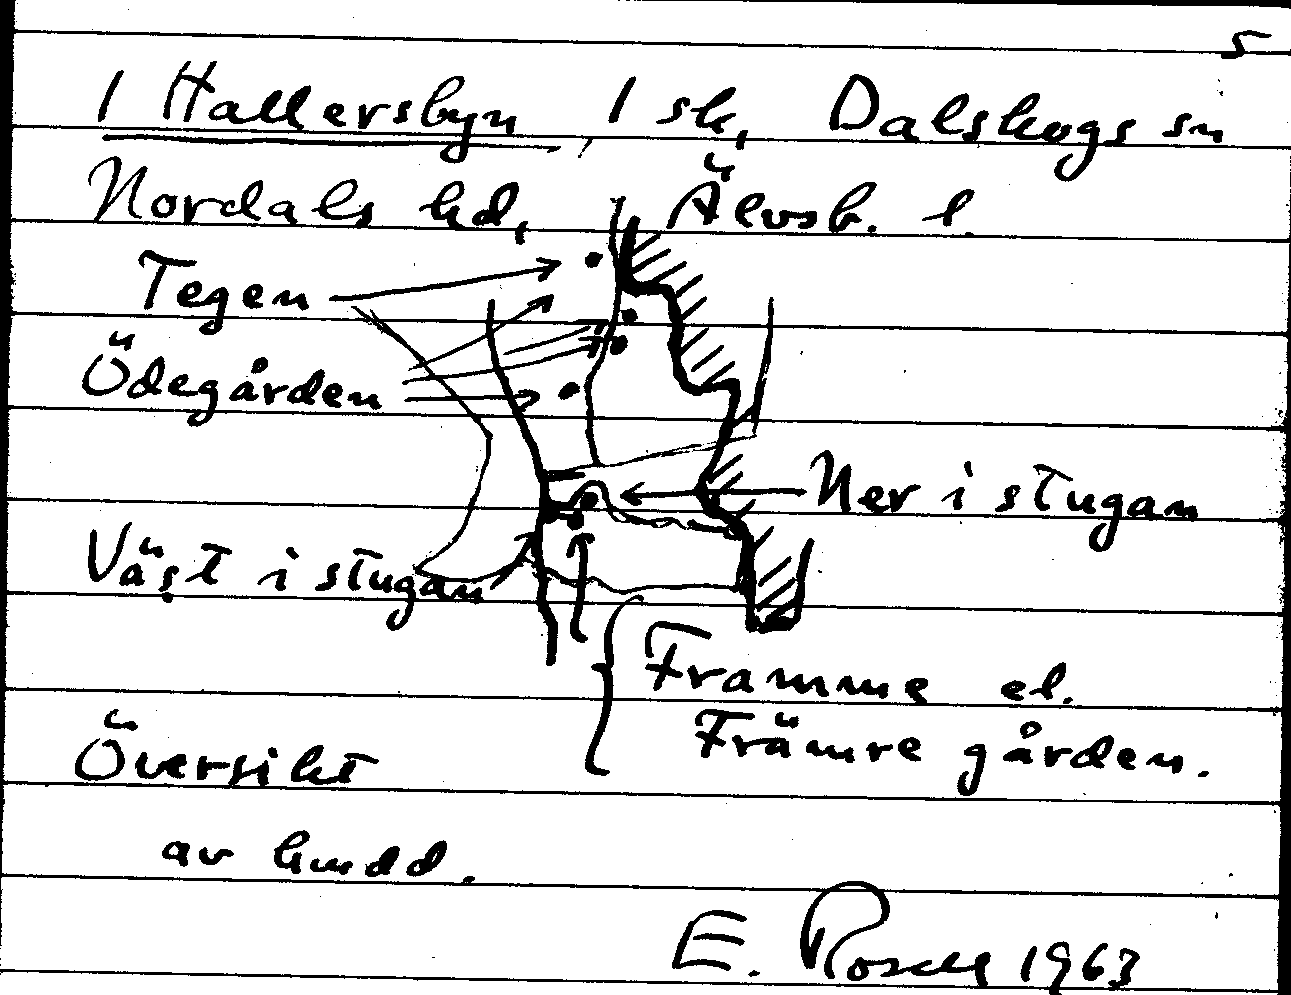 5
1 Hallersbyn, 1 sk, Dalskogs sn
Nordals hd, Älvsb. l.
Tegen
Ödegården
Ner i stugan
Väst i stugan
Framme el.
Främre gården.
Översikt
av hmdd.
E. Rosell 1963